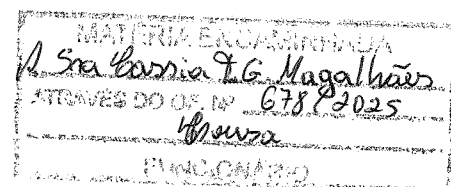 MATÉRIA ENCAMINHADA
A Sra Cassia T.G. Magalhães
ATRAVÉS DO OF. Nº 678/2025
Souza
FUNCIONÁRIO